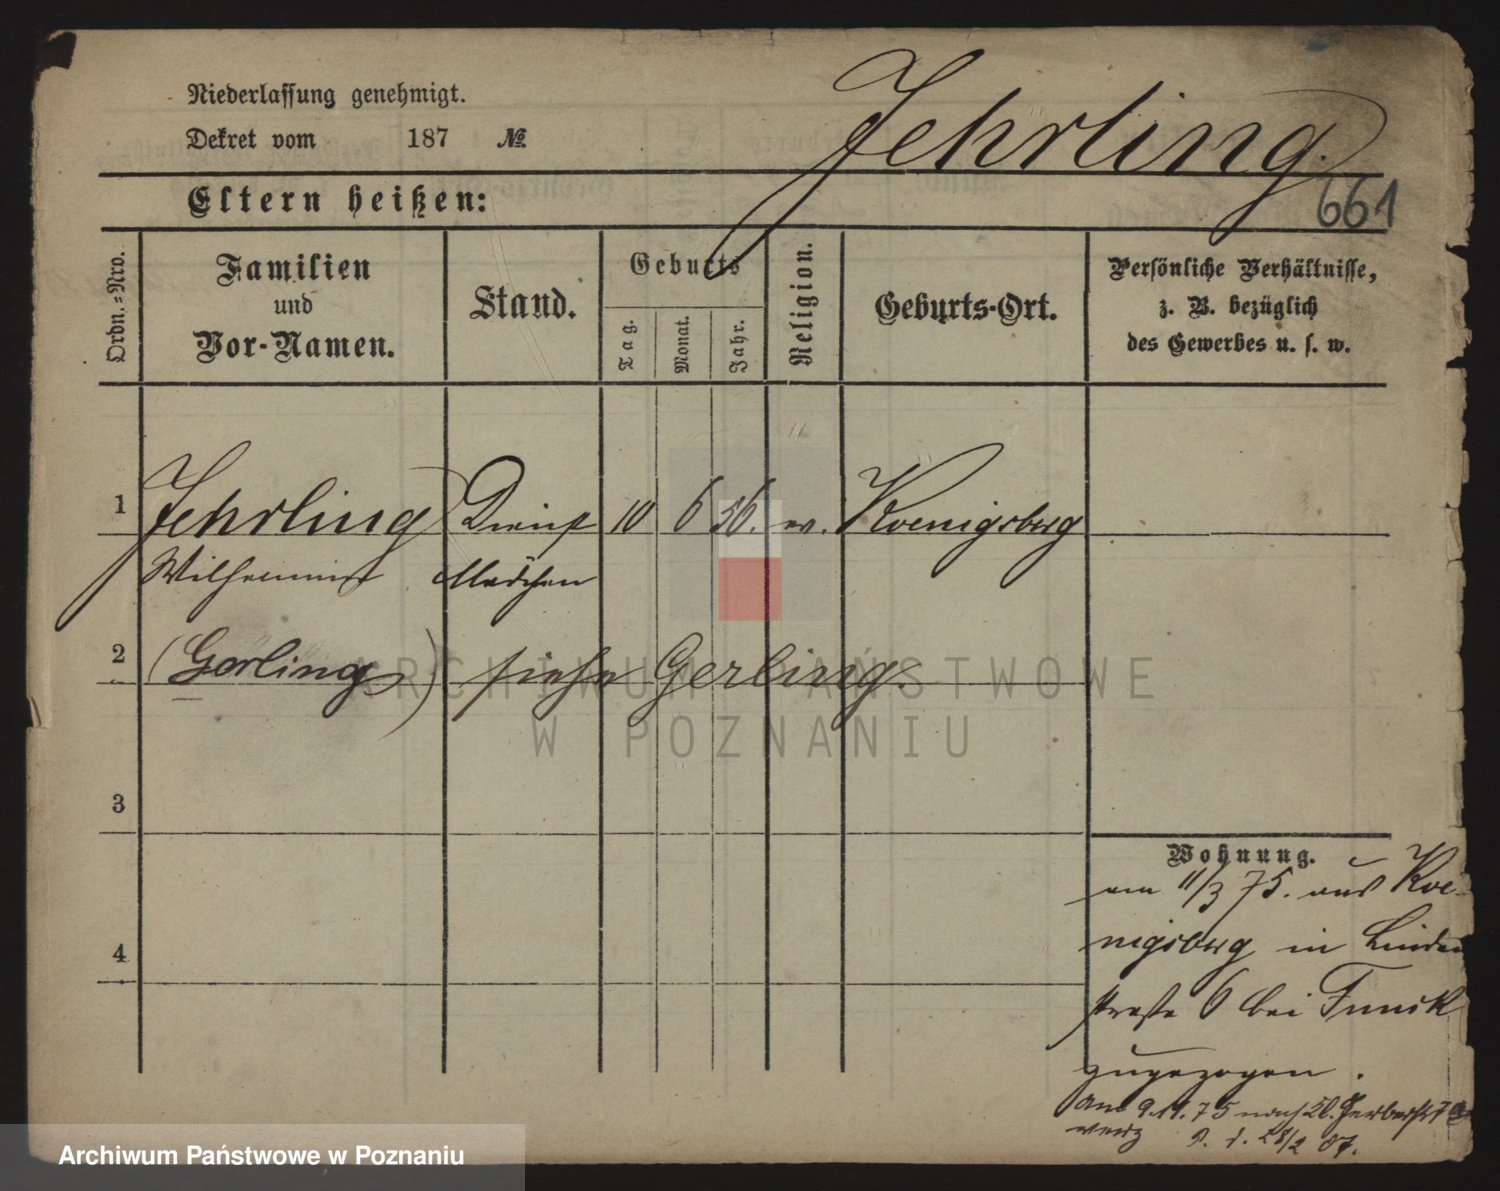 Niederlassung genehmigt.
Dekret vom 187 №
Jehrling.
661
Eltern heißen:
Ordn.-Nro.
Familien
und
Vor-Namen.
Stand.
Geburts
Tag.
Monat.
Jahr.
Religion.
Geburts-Ort.
Persönliche Verhältnisse,
z. B. bezüglich
des Gewerbes u. s. w.
1 Jehrling Dienst 10 6 56. ev. Koenigsberg
Wilhelmine Mädchen
2 (Gerling) siehe Gerling.
3
4
Wohnung.
am 11/3 75. aus Koe-
nigsberg in Linden
straße 6 bei Funck
zugezogen.
am 9.11.75 nach Kl. Gerberstr 7
verz 28/2 87.
ARCHIWUM PAŃSTWOWE
W POZNANIU
Archiwum Państwowe w Poznaniu